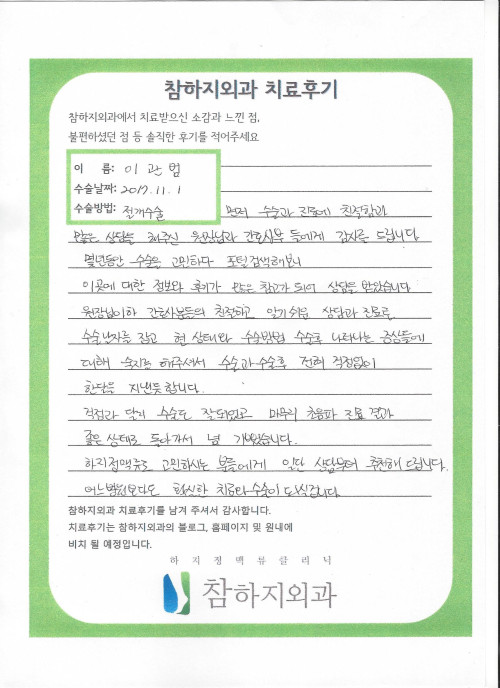 참하지외과 치료후기
참하지외과에서 치료받으신 소감과 느낀 점,
불편하셨던 점 등 솔직한 후기를 적어주세요
이 름: 이관범
수술날짜: 2017.11.1
수술방법: 절개수술
먼저 수술과 진료에 친절함과
많은 상담을 해주신 원장님과 간호사분들에게 감사를 드립니다
몇년동안 수술을 고민하다 포털검색해보니
이곳에 대한 정보와 후기가 많은 참고가 되어 상담을 받았습니다
원장님이하 간호사분들의 친절하고 알기쉬운 상담과 진료로
수술날자를 잡고 현 상태와 수술방법 수술후 나타나는 증상들에
대해 숙지를 해주셔서 수술과 수술후 전혀 걱정없이
한달을 지낸듯 합니다.
걱정과 달리 수술도 잘되었고 마무리 초음파 진료 결과
좋은 상태로 돌아가서 넘 기뻤습니다.
하지정맥류로 고민하시는 분들에게 일단 상담부터 추천해 드립니다.
어느병원보다도 확실한 치료와 수술이
참하지외과 치료후기를 남겨 주셔서 감사합니다.
치료후기는 참하지외과의 블로그, 홈페이지 및 원내에
비치 될 예정입니다.
하지정맥류클리닉
참하지외과